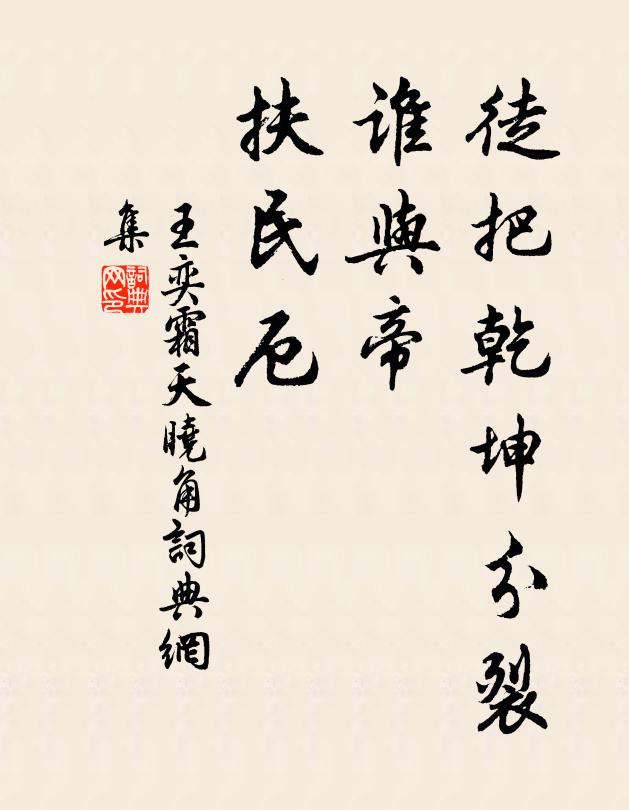 徒把乾坤分裂
誰與帝
扶民厄
王奕霜天曉角詞典網
集
詞典網印